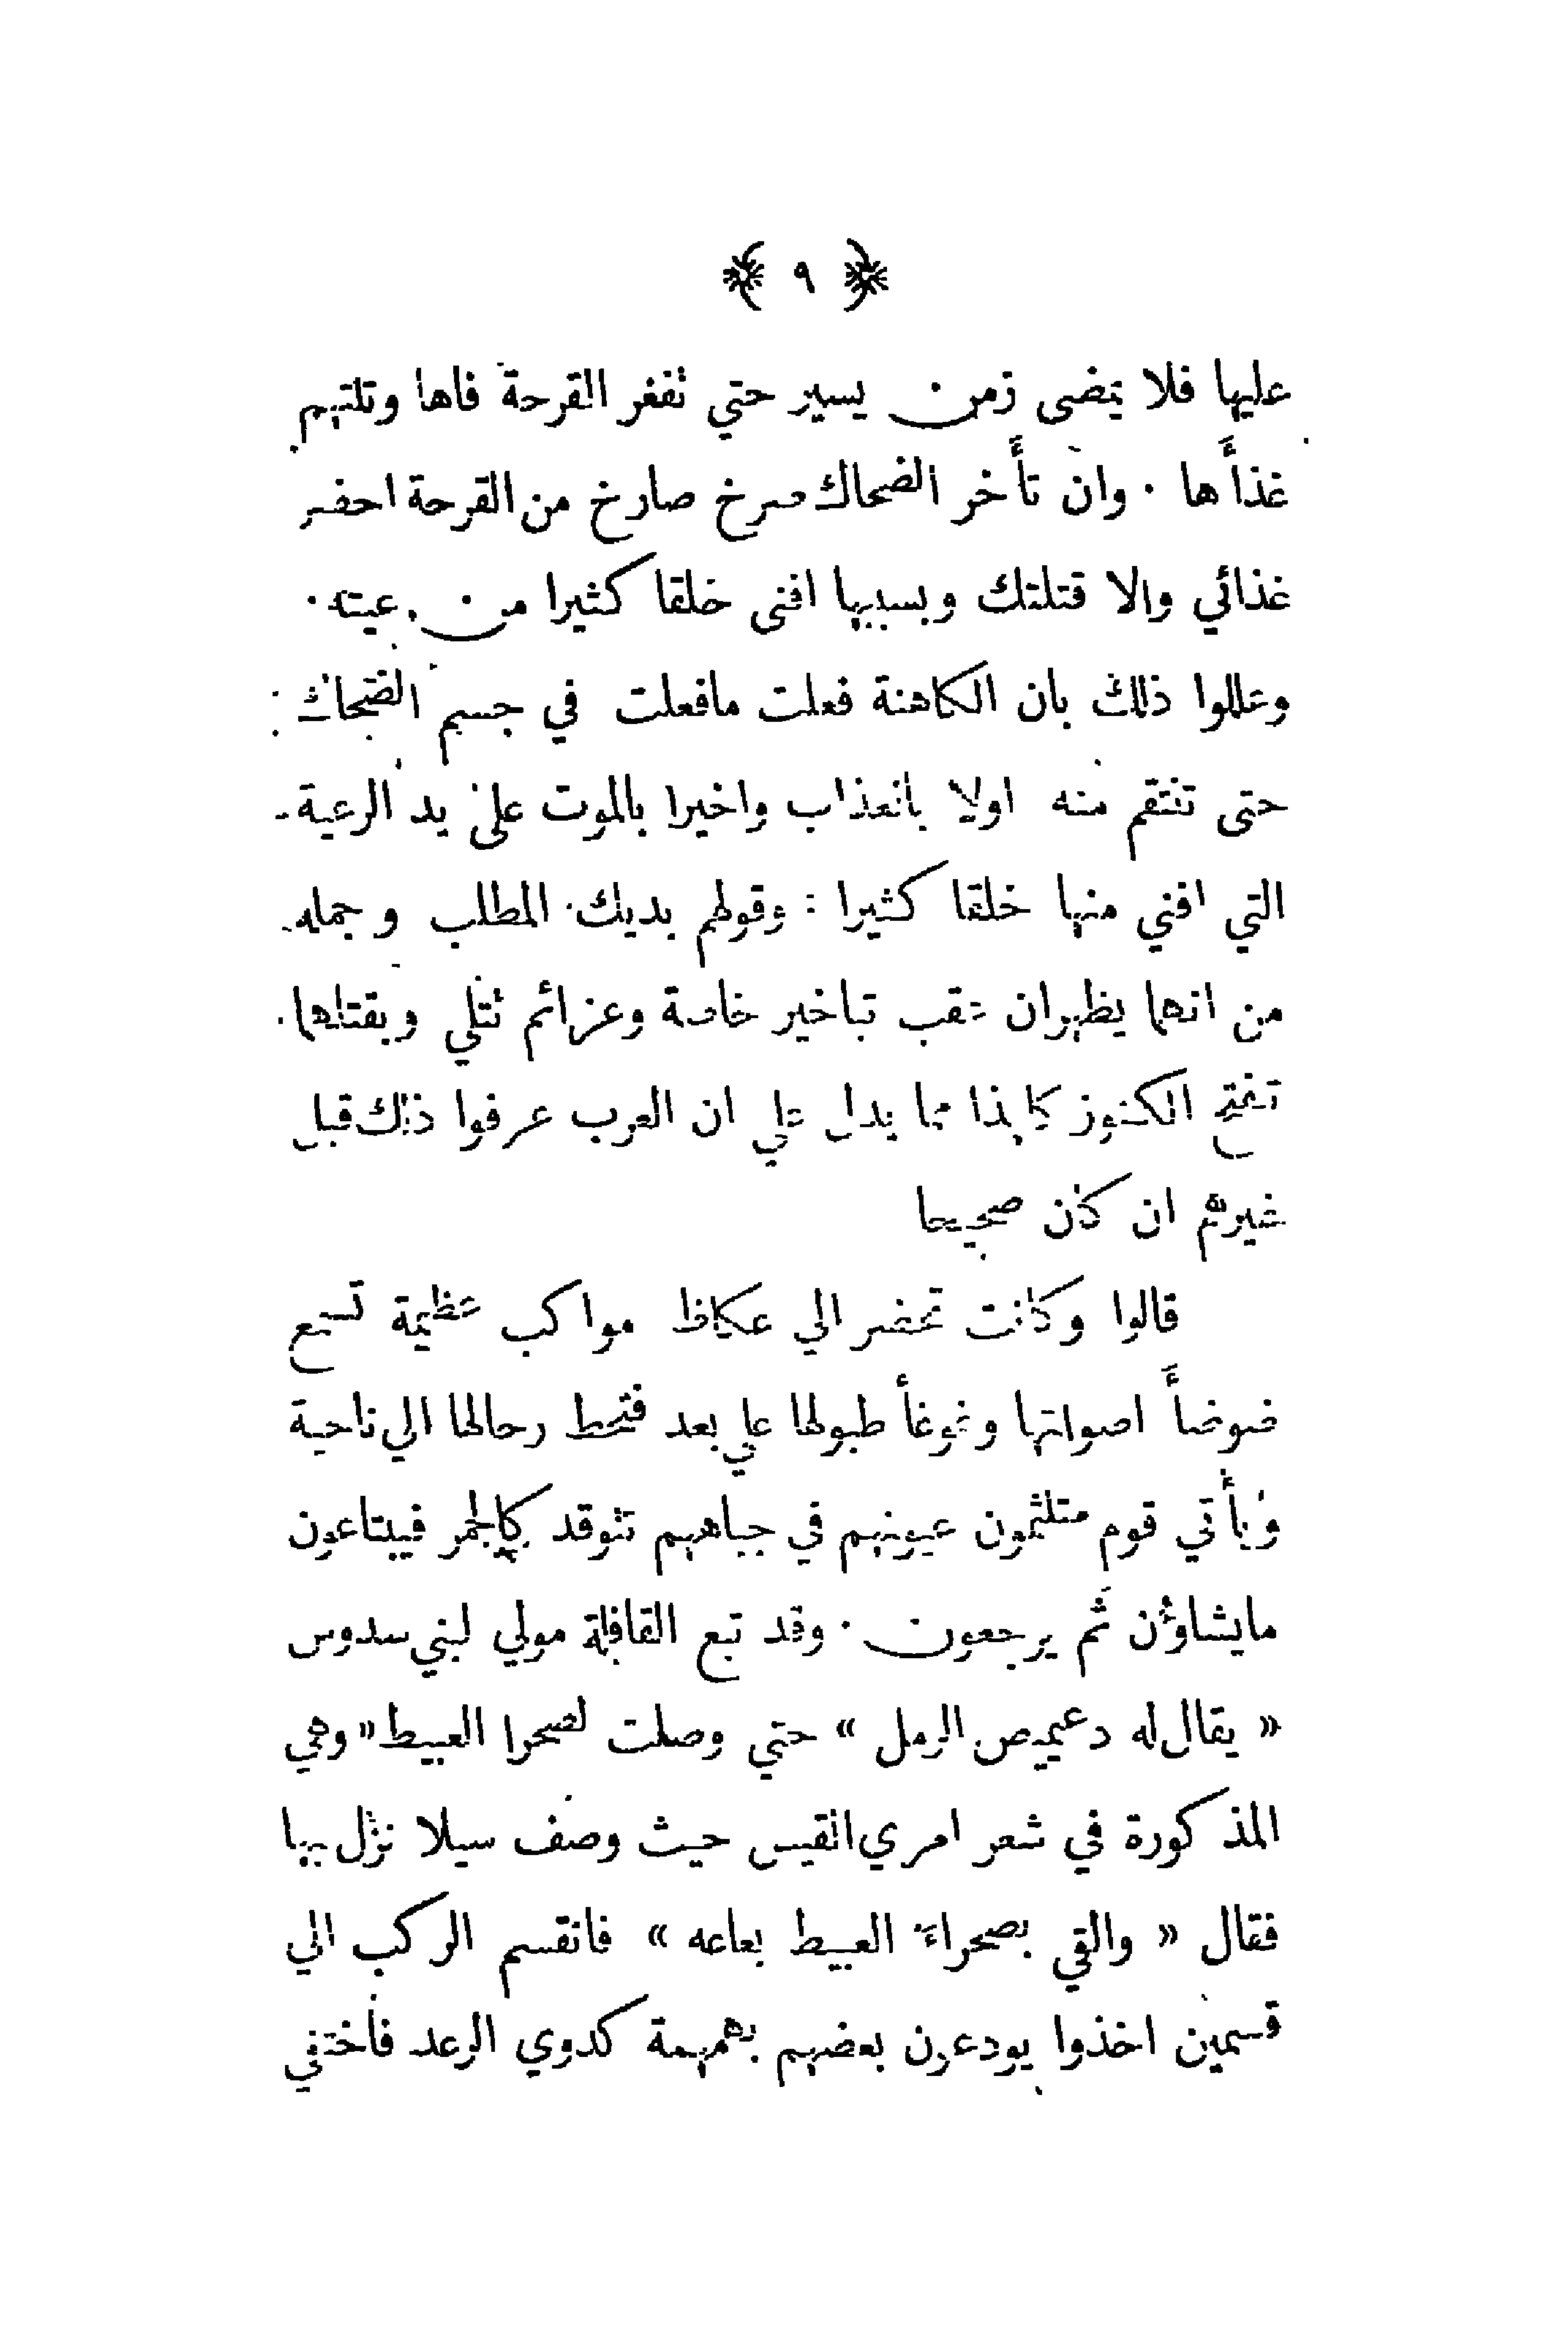 ﴿ ٩ ﴾
عليها فلا يمضى زمن يسير حتي تفغر القرحة فاها وتلتهم
غذأَها . وان تأَخر الضحاك صرخ صارخ من القرحة احضر
غذائي والا قتلتك وبسببها افنى خلقا كثيرا من رعيته .
وعللوا ذلك بان الكاهنة فعلت مافعلت في جسم الضحاك :
حتى تنتقم منه اولا بالعذاب واخيرا بالموت على يد الرعية
التي افني منها خلقا كثيرا : وقولهم بديك المطلب وجمله
من انهما يظهران عقب تباخير خاصة وعزائم تتلي وبقتلهما
تفتح الكنوز كل هذا مما يدل علي ان العرب عرفوا ذلك قبل
غيرهم ان كان صحيحا
قالوا وكانت تحضر الي عكاظ مواكب عظيمة تسمع
ضوضأَ اصواتها وغوغأ طبولها علي بعد فتحط رحالها الي ناحية
ويأتي قوم متلثمون عيونهم في جباههم تتوقد كالجمر فيبتاعون
مايشاؤن ثم يرجعون . وقد تبع القافلة مولي لبني سدوس
« يقال له دعيميص الرمل » حتي وصلت لصحرا الغبيط « وهي
المذكورة في شعر امري القيس حيث وصف سيلا نزل بها
فقال « والقي بصحراء الغبيط بعاعه » فانقسم الركب الي
قسمين اخذوا يودعون بعضهم بهمهمة كدوي الرعد فاختفي